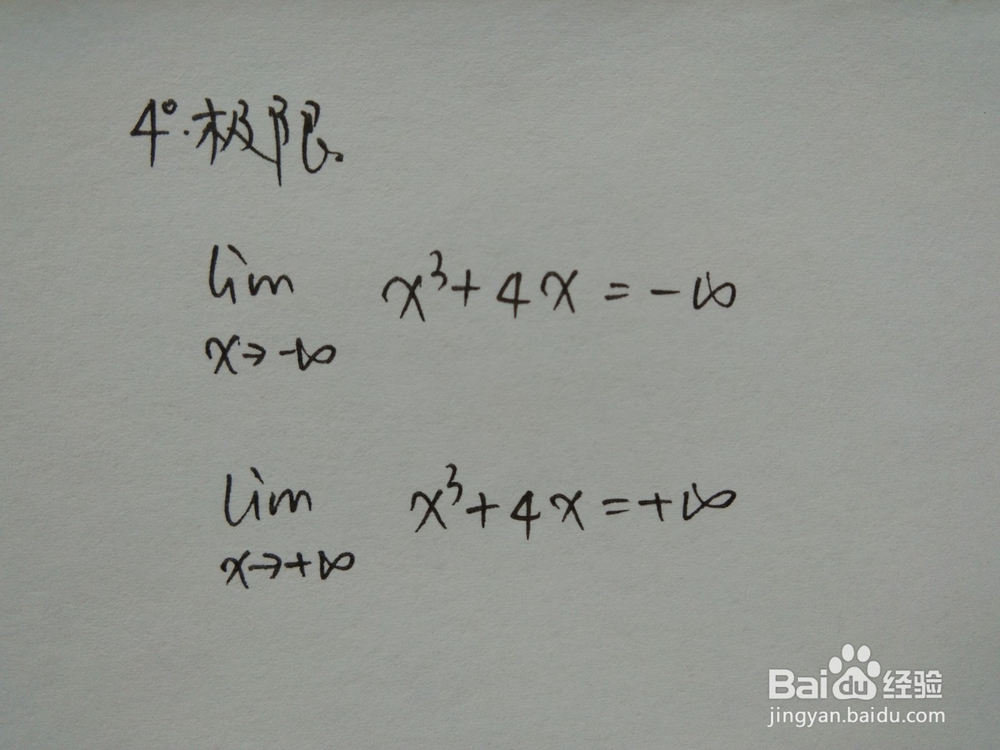 4°.极限.
lim x³+4x=-∞
x→-∞
lim x³+4x=+∞
x→+∞
Baidu 经验
jingyan.baidu.com